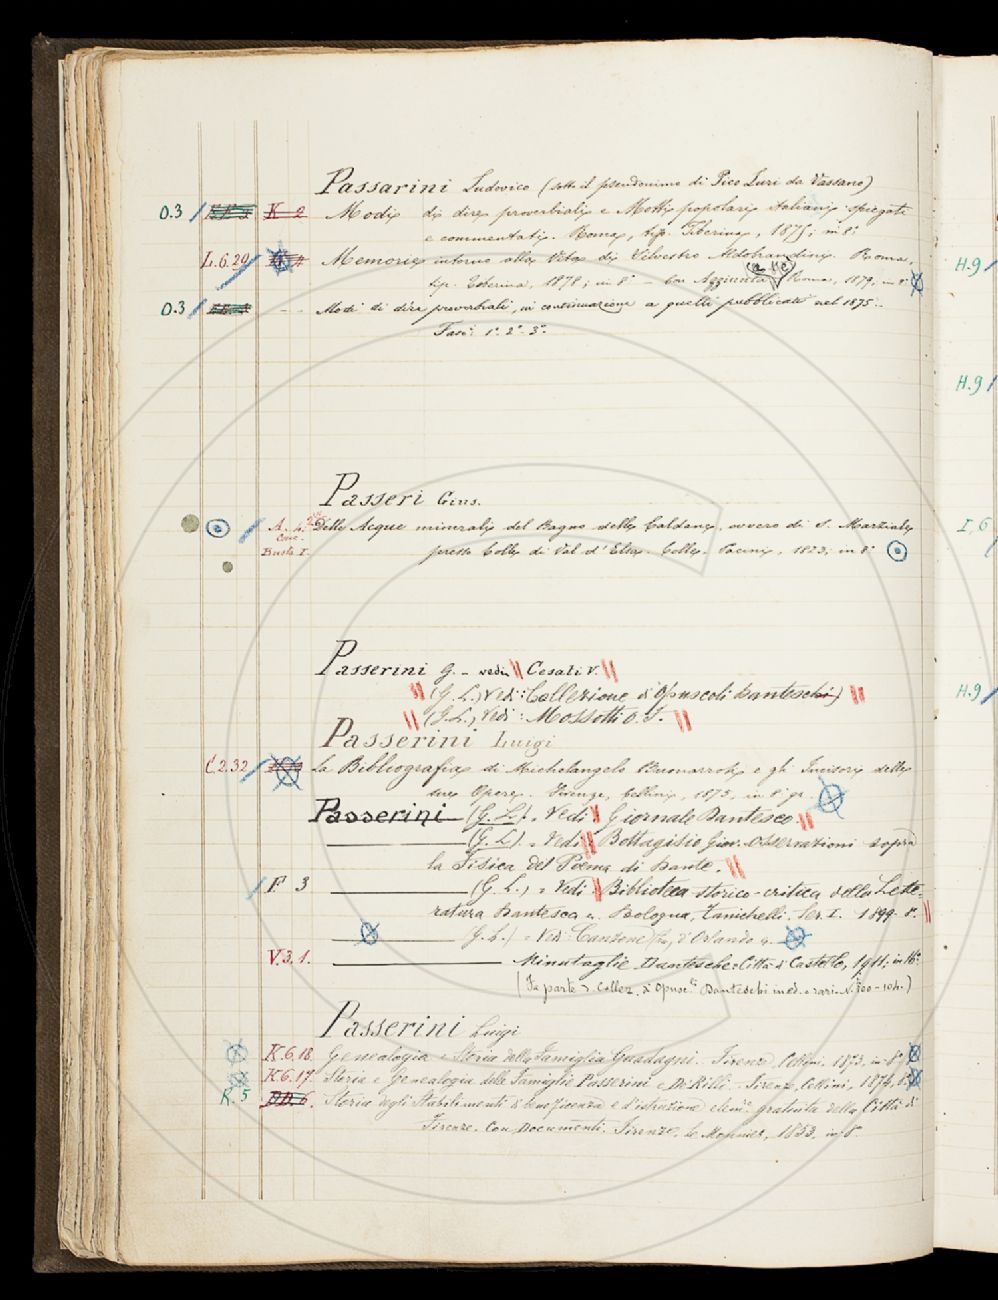 Passarini Ludovico (sotto il pseudonimo di Pico Luri da Vassano)
O.3 K 2 Modi di dire proverbiali e Motti popolari italiani spiegati
e commentati. Roma, tip. Tiberina, 1875; in 8°
L.6.29 Memorie intorno alla Vita di Silvestro Aldobrandini. Roma,
tip. Tiberina, 1878; in 8° – Con Aggiunta Roma, 1879, in 8°
O.3 - - Modi di dire proverbiali, in continuazione a quelli pubblicati nel 1875.
Fasc. 1° 2° 3°.
Passeri Gius.
A. 4. Delle Acque minerali del Bagno delle Caldane, ovvero di S. Marziale
Busta I. presso Colle di Val d'Elsa. Colle, Pacini, 1823; in 8°
Passerini G. - vedi Cesati V.
(G. L.) Vedi: Collezione d'Opuscoli danteschi)
(G. L.) Vedi: Mossotti O. F.
Passerini Luigi
C.2.32 La Bibliografia di Michelangelo Buonarroti e gli Incisori delle
sue Opere. Firenze, Cellini, 1875, in 8° gr.
Passerini (G. L.). Vedi Giornale Dantesco.
(G. L.). Vedi Bottagisio Giov. Osservazioni sopra
la Fisica del Poema di Dante.
F 3 (G. L.) = Vedi Biblioteca storico-critica della Lette-
ratura Dantesca. Bologna, Zanichelli. Ser. I. 1899. 8°.
(G. L.) = Vedi: Canzone d'Orlando
V.3.1. Minutaglie Dantesche. Città di Castello, 1911; in 16°.
(Fa parte d. Collez. d'Opusc.li Danteschi ined. o rari N.i 100-104.)
Passerini Luigi
K.6.18. Genealogia e Storia della Famiglia Guadagni. Firenze, Cellini, 1873, in 8°
K.6.17. Storia e Genealogia delle Famiglie Passerini e De Rilli. - Firenze, Cellini, 1874, 8°
R.5 DD.6. Storia degli Stabilimenti di beneficenza e d'istruzione elem.e gratuita della Città di
Firenze. Con Documenti. Firenze, le Monnier, 1853, in 8°
H.9
H.9
I,6
H.9